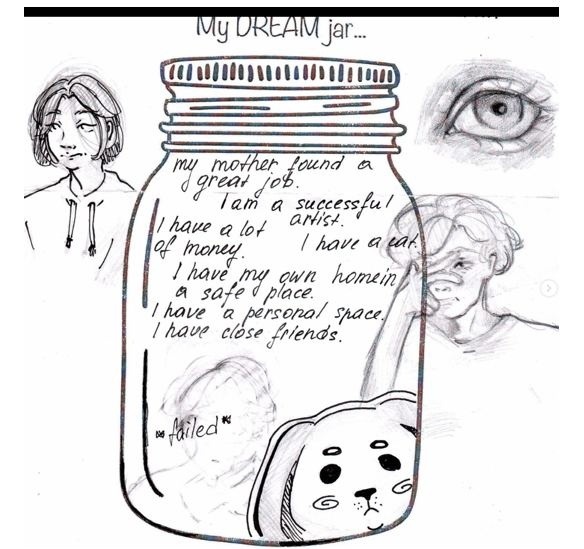 My DREAM jar...
my mother found a
great job.
I am a successful
artist.
I have a lot
of money.
I have a cat.
I have my own homein
a safe place.
I have a personal space.
I have close friends.
*failed*